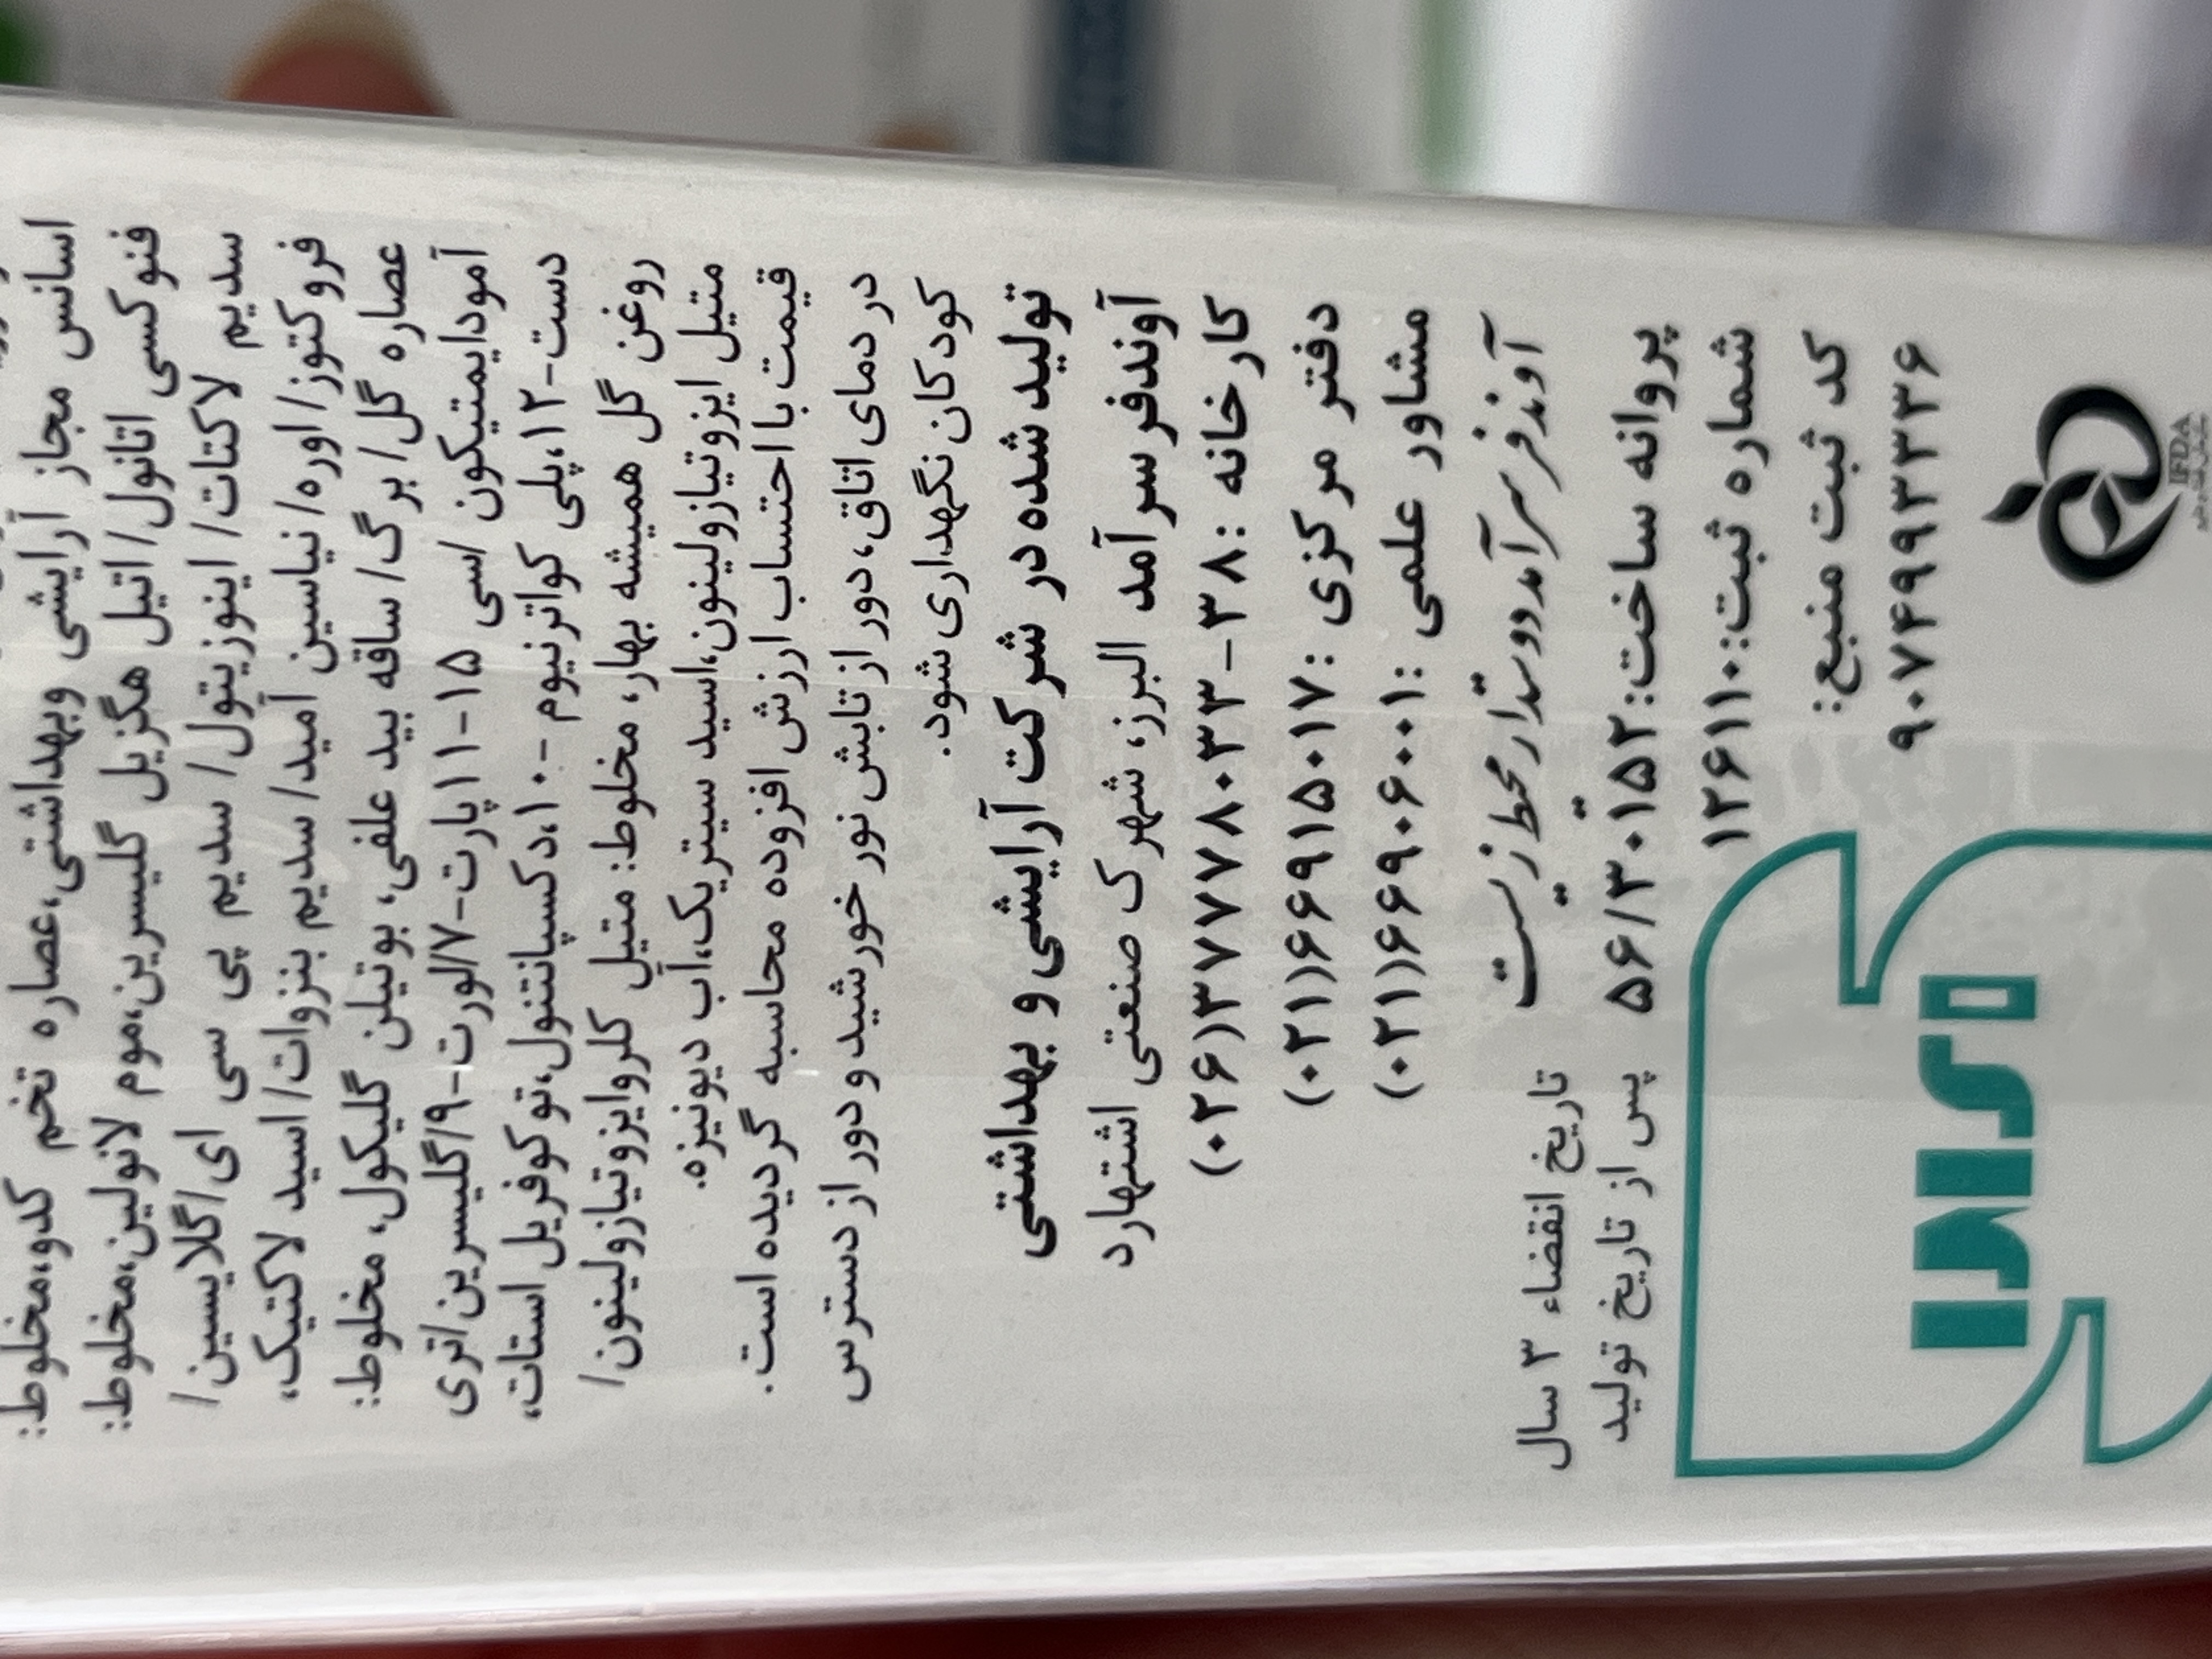 اسانس مجاز آرایشی وبهداشتی،عصاره تخم کدو،مخلوط:
فنوکسی اتانول/اتیل هگزیل گلیسرین،موم لانولین،مخلوط:
سدیم لاکتات/ اینوزیتول/ سدیم پی سی ای/گلایسین/
فروکتوز/اوره/نیاسین آمید/ سدیم بنزوات/اسید لاکتیک،
عصاره گل/برگ/ساقه بید علفی، بوتیلن گلیکول، مخلوط:
آمودایمتیکون /سی ۱۵-۱۱پارت-۷/لورت-۹/گلیسرین/تری
دست-۱۲،پلی کواترنیوم -۱۰،دکسپانتنول،توکوفریل استات،
روغن گل همیشه بهار، مخلوط: متیل کلروایزوتیازولینون/
متیل ایزوتیازولینون،اسید سیتریک،آب دیونیزه.
قیمت با احتساب ارزش افزوده محاسبه گردیده است.
در دمای اتاق،دور از تابش نور خورشید و دور از دسترس
کودکان نگهداری شود.
تولید شده در شرکت آرایشی و بهداشتی
آوندفر سرآمد البرز، شهرک صنعتی اشتهارد
کارخانه :۳۸-۳۷۷۷۸۰۳۳(۰۲۶)
دفتر مرکزی :۶۶۹۱۵۰۱۷(۰۲۱)
مشاور علمی :۶۶۹۰۶۰۰۱(۰۲۱)
آوندفر سرآمد دوستدار محیط زیست
پروانه ساخت:۵۶/۳۰۱۵۲
شماره ثبت:۱۲۶۱۱۰
کد ثبت منبع:
۹۰۷۴۹۹۳۳۳۶
تاریخ انقضاء ۳ سال
پس از تاریخ تولید
IFDA